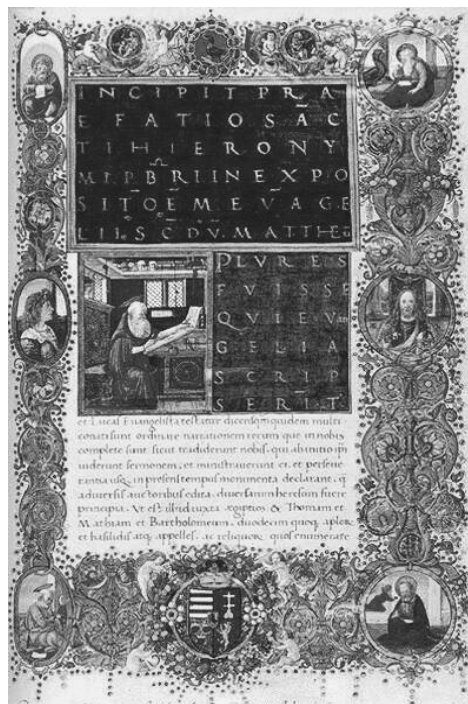 INCIPIT PRA
EFATIO SAC
TI HIERONY
M.I.P.BRI IN EXPO
SITOEM EVAGE
LII.SCDV.MATTHE
PLVRES
FVISSE
QVI EV
GELIA
SCRIP
SERIT
et Lucas Evangelista testatur dicens quidem multi
conati sunt ordinare narrationem rerum que in nobis
complete sunt sicut tradiderunt nobis. qui ab initio ipi
viderunt sermonem, et ministraverunt ei. et perseve
rantia usq; in presens tempus monumenta declarant. q
a diversis auctoribus edita. diversarum heresum fuere
principia. Ut est illud iuxta ægiptios & Thomam et
Mathiam et Bartholomeum. duodecim quoq; aplor
et basilidis atq; appelles. ac reliquor quos enumerare